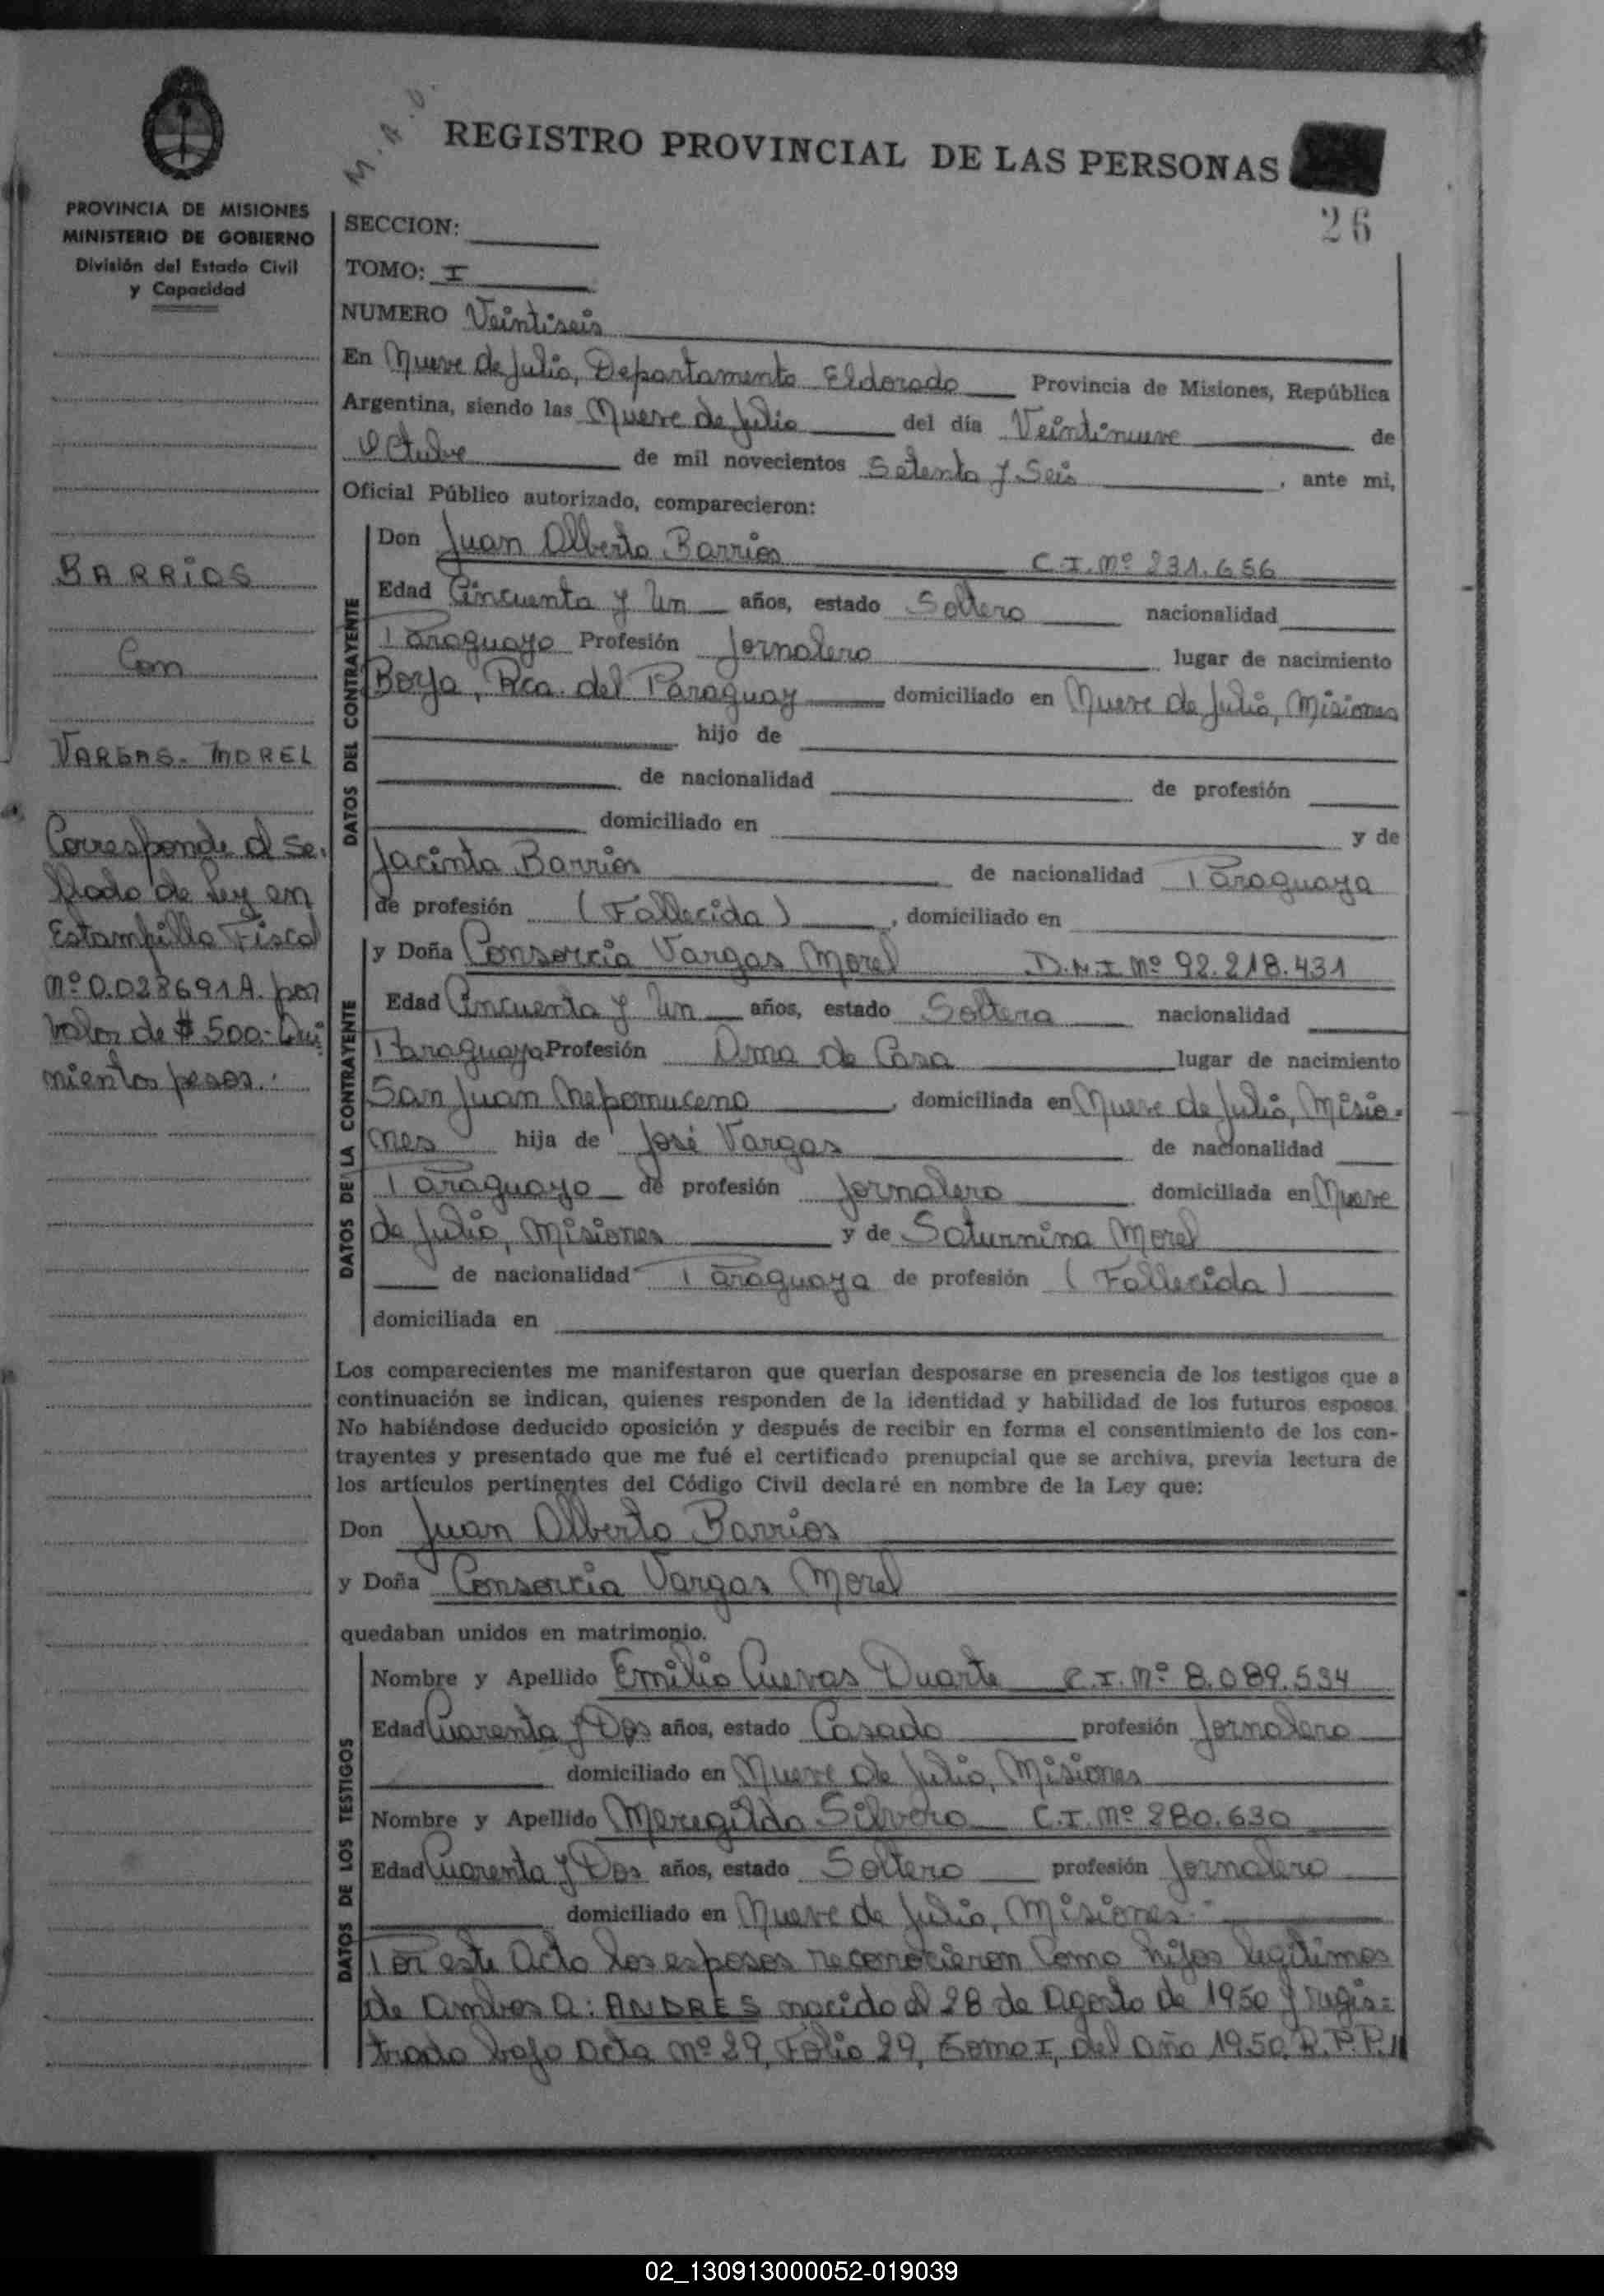 M. A. O.
REGISTRO PROVINCIAL DE LAS PERSONAS
26
PROVINCIA DE MISIONES
MINISTERIO DE GOBIERNO
División del Estado Civil
y Capacidad
BARRIOS
Con
VARGAS-MOREL
Corresponde al Se-
llado de Ley en
Estampilla Fiscal
Nº 0.028691A. por
Valor de $ 500.- Qui
nientos pesos.-
SECCION:
TOMO: I
NUMERO Veintiseis
En Nueve de Julio, Departamento Eldorado Provincia de Misiones, República
Argentina, siendo las Nueve de Julio del día Veintinueve de
Octubre de mil novecientos Setenta y Seis, ante mi,
Oficial Público autorizado, comparecieron:
DATOS DEL CONTRAYENTE
Don Juan Alberto Barrios C.I. Nº 231.656
Edad Cincuenta y Un años, estado Soltero nacionalidad
Paraguayo Profesión Jornalero lugar de nacimiento
Borja, Rca. del Paraguay domiciliado en Nueve de Julio, Misiones
hijo de
de nacionalidad de profesión
domiciliado en y de
Jacinta Barrios de nacionalidad Paraguaya
de profesión (Fallecida), domiciliado en
DATOS DE LA CONTRAYENTE
y Doña Consorcia Vargas Morel D.N.I Nº 92.218.431
Edad Cincuenta y Un años, estado Soltera nacionalidad
Paraguaya Profesión Ama de Casa lugar de nacimiento
San Juan Nepomuceno, domiciliada en Nueve de Julio, Misio-
nes hija de José Vargas de nacionalidad
Paraguayo de profesión Jornalero domiciliada en Nueve
de Julio, Misiones y de Saturnina Morel
de nacionalidad Paraguaya de profesión (Fallecida)
domiciliada en
Los comparecientes me manifestaron que querían desposarse en presencia de los testigos que a
continuación se indican, quienes responden de la identidad y habilidad de los futuros esposos.
No habiéndose deducido oposición y después de recibir en forma el consentimiento de los con-
trayentes y presentado que me fué el certificado prenupcial que se archiva, previa lectura de
los artículos pertinentes del Código Civil declaré en nombre de la Ley que:
Don Juan Alberto Barrios
y Doña Consorcia Vargas Morel
quedaban unidos en matrimonio.
DATOS DE LOS TESTIGOS
Nombre y Apellido Emilio Cuevas Duarte C.I. Nº 8.089.534
Edad Cuarenta y Dos años, estado Casado profesión Jornalero
domiciliado en Nueve de Julio, Misiones
Nombre y Apellido Meregildo Silvero C.I. Nº 280.630
Edad Cuarenta y Dos años, estado Soltero profesión Jornalero
domiciliado en Nueve de Julio, Misiones.-
Por este Acto los esposos reconocieron Como hijos legitimos
de ambos a: ANDRES nacido el 28 de Agosto de 1950 y regis=
trado bajo Acta Nº 29, Folio 29, Tomo I, del Año 1950. R.P.P.//
02_130913000052-019039